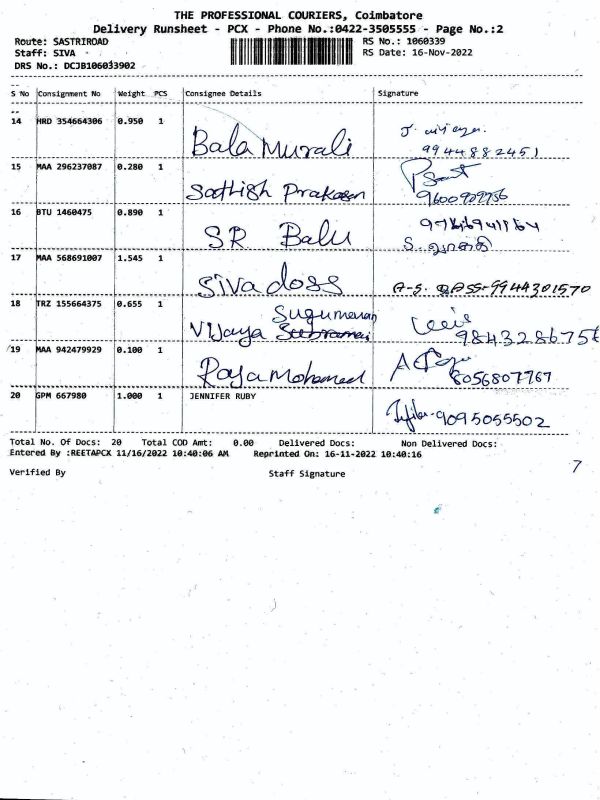 THE PROFESSIONAL COURIERS, Coimbatore
Delivery Runsheet - PCX - Phone No.:0422-3505555 - Page No.:2
Route: SASTRIROAD
RS No.: 1060339
Staff: SIVA
RS Date: 16-Nov-2022
DRS No.: DCJB106033902
S No Consignment No Weight PCS Consignee Details Signature
14 HRD 354664306 0.950 1 Bala Murali
9944882451
15 MAA 296237087 0.280 1 Sathish Prakasan
16 BTU 1460475 0.890 1 SR Balu
17 MAA 568691007 1.545 1 Siva doss A-S. DASS-9944301570
18 TRZ 155664375 0.655 1 Vijaya Sugumaran
9843286756
19 MAA 942479929 0.100 1 Raja Mohamed
8056807767
20 GPM 667980 1.000 1 JENNIFER RUBY
9095055502
Total No. Of Docs: 20 Total COD Amt: 0.00 Delivered Docs: Non Delivered Docs:
Entered By :REETAPCX 11/16/2022 10:40:06 AM Reprinted On: 16-11-2022 10:40:16
7
Verified By Staff Signature